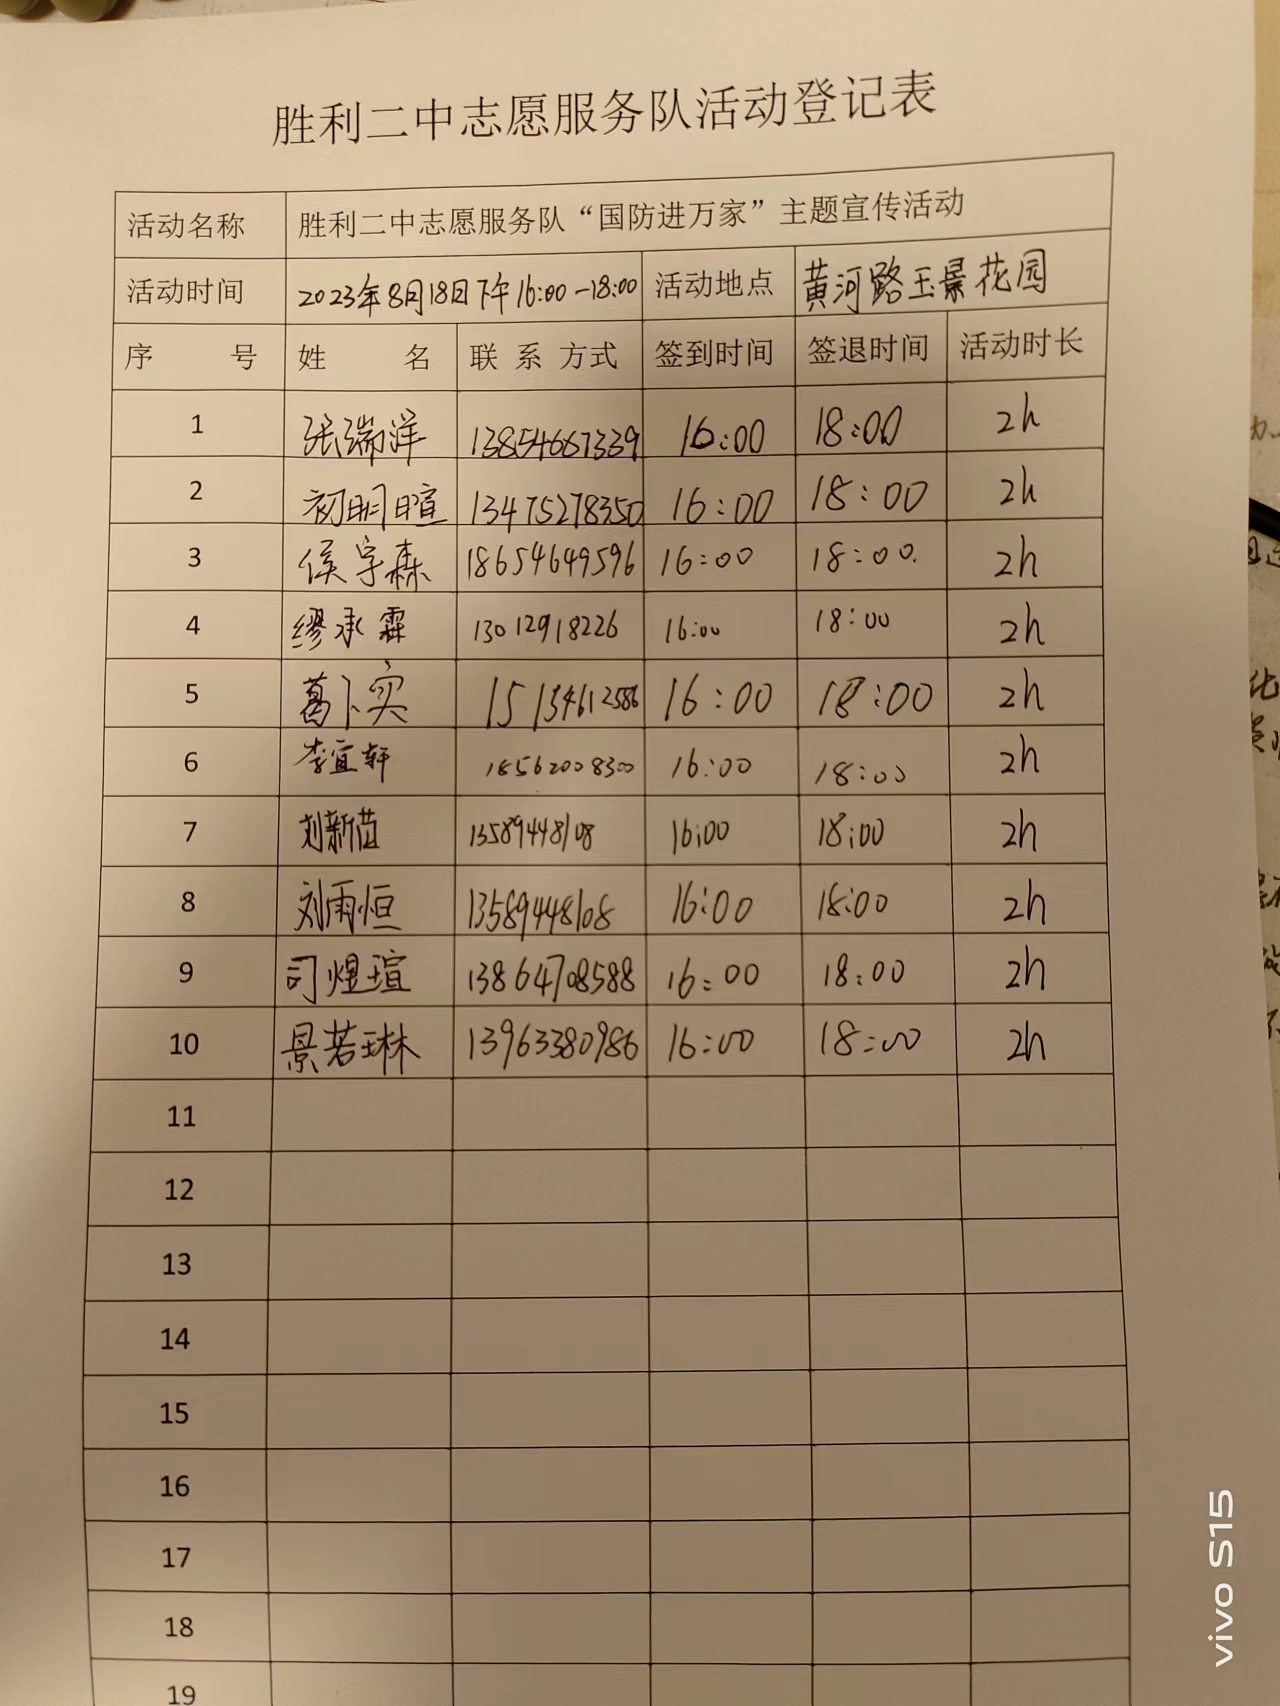 胜利二中志愿服务队活动登记表
活动名称 胜利二中志愿服务队“国防进万家”主题宣传活动
活动时间 2023年8月18日下午16:00-18:00 活动地点 黄河路玉景花园
序号 姓名 联系方式 签到时间 签退时间 活动时长
1 张瑞洋 13854667339 16:00 18:00 2h
2 初明暄 13475278350 16:00 18:00 2h
3 侯宇森 18654649596 16:00 18:00 2h
4 缪承霖 13012918226 16:00 18:00 2h
5 葛卜实 15134612586 16:00 18:00 2h
6 李宜轩 18562008300 16:00 18:00 2h
7 刘新苗 13589448108 16:00 18:00 2h
8 刘雨恒 13589448108 16:00 18:00 2h
9 司煜瑄 13864708588 16:00 18:00 2h
10 景若琳 13963380986 16:00 18:00 2h
11
12
13
14
15
16
17
18
19
vivo S15